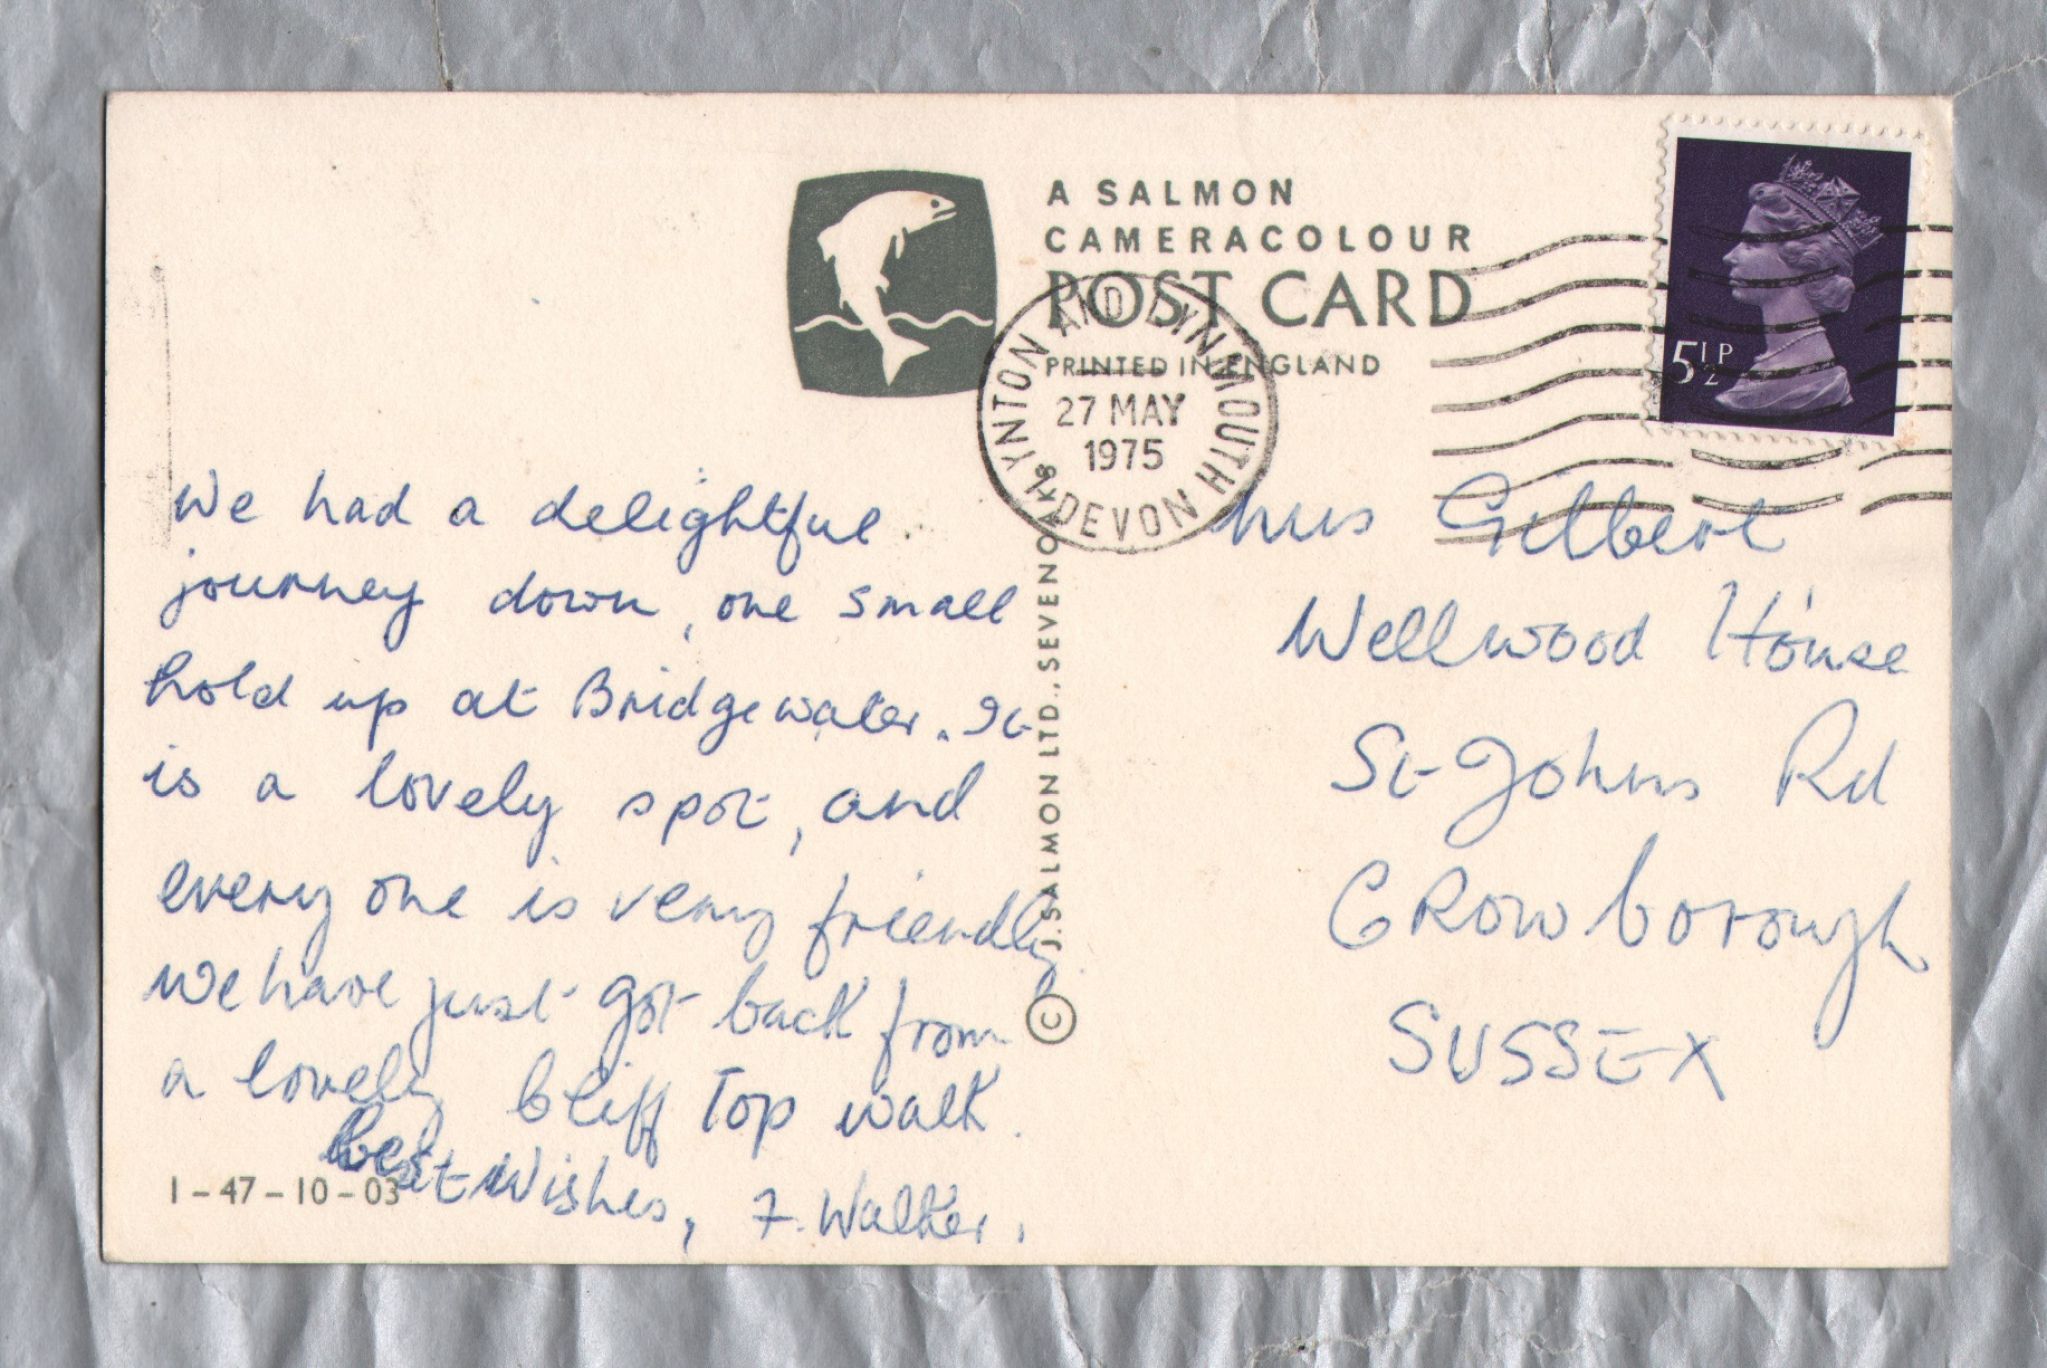 A SALMON
CAMERACOLOUR
POST CARD
PRINTED IN ENGLAND
LYNTON AND LYNMOUTH
27 MAY
1975
DEVON
5½P
We had a delightful
journey down, one small
hold up at Bridgewater. It
is a lovely spot, and
every one is very friendly.
We have just got back from
a lovely Cliff Top walk.
best Wishes, F. Walker.
1-47-10-03
© J. SALMON LTD., SEVENOAKS
Mrs Gilbert
Wellwood House
St Johns Rd
CRowborough
SUSSEX